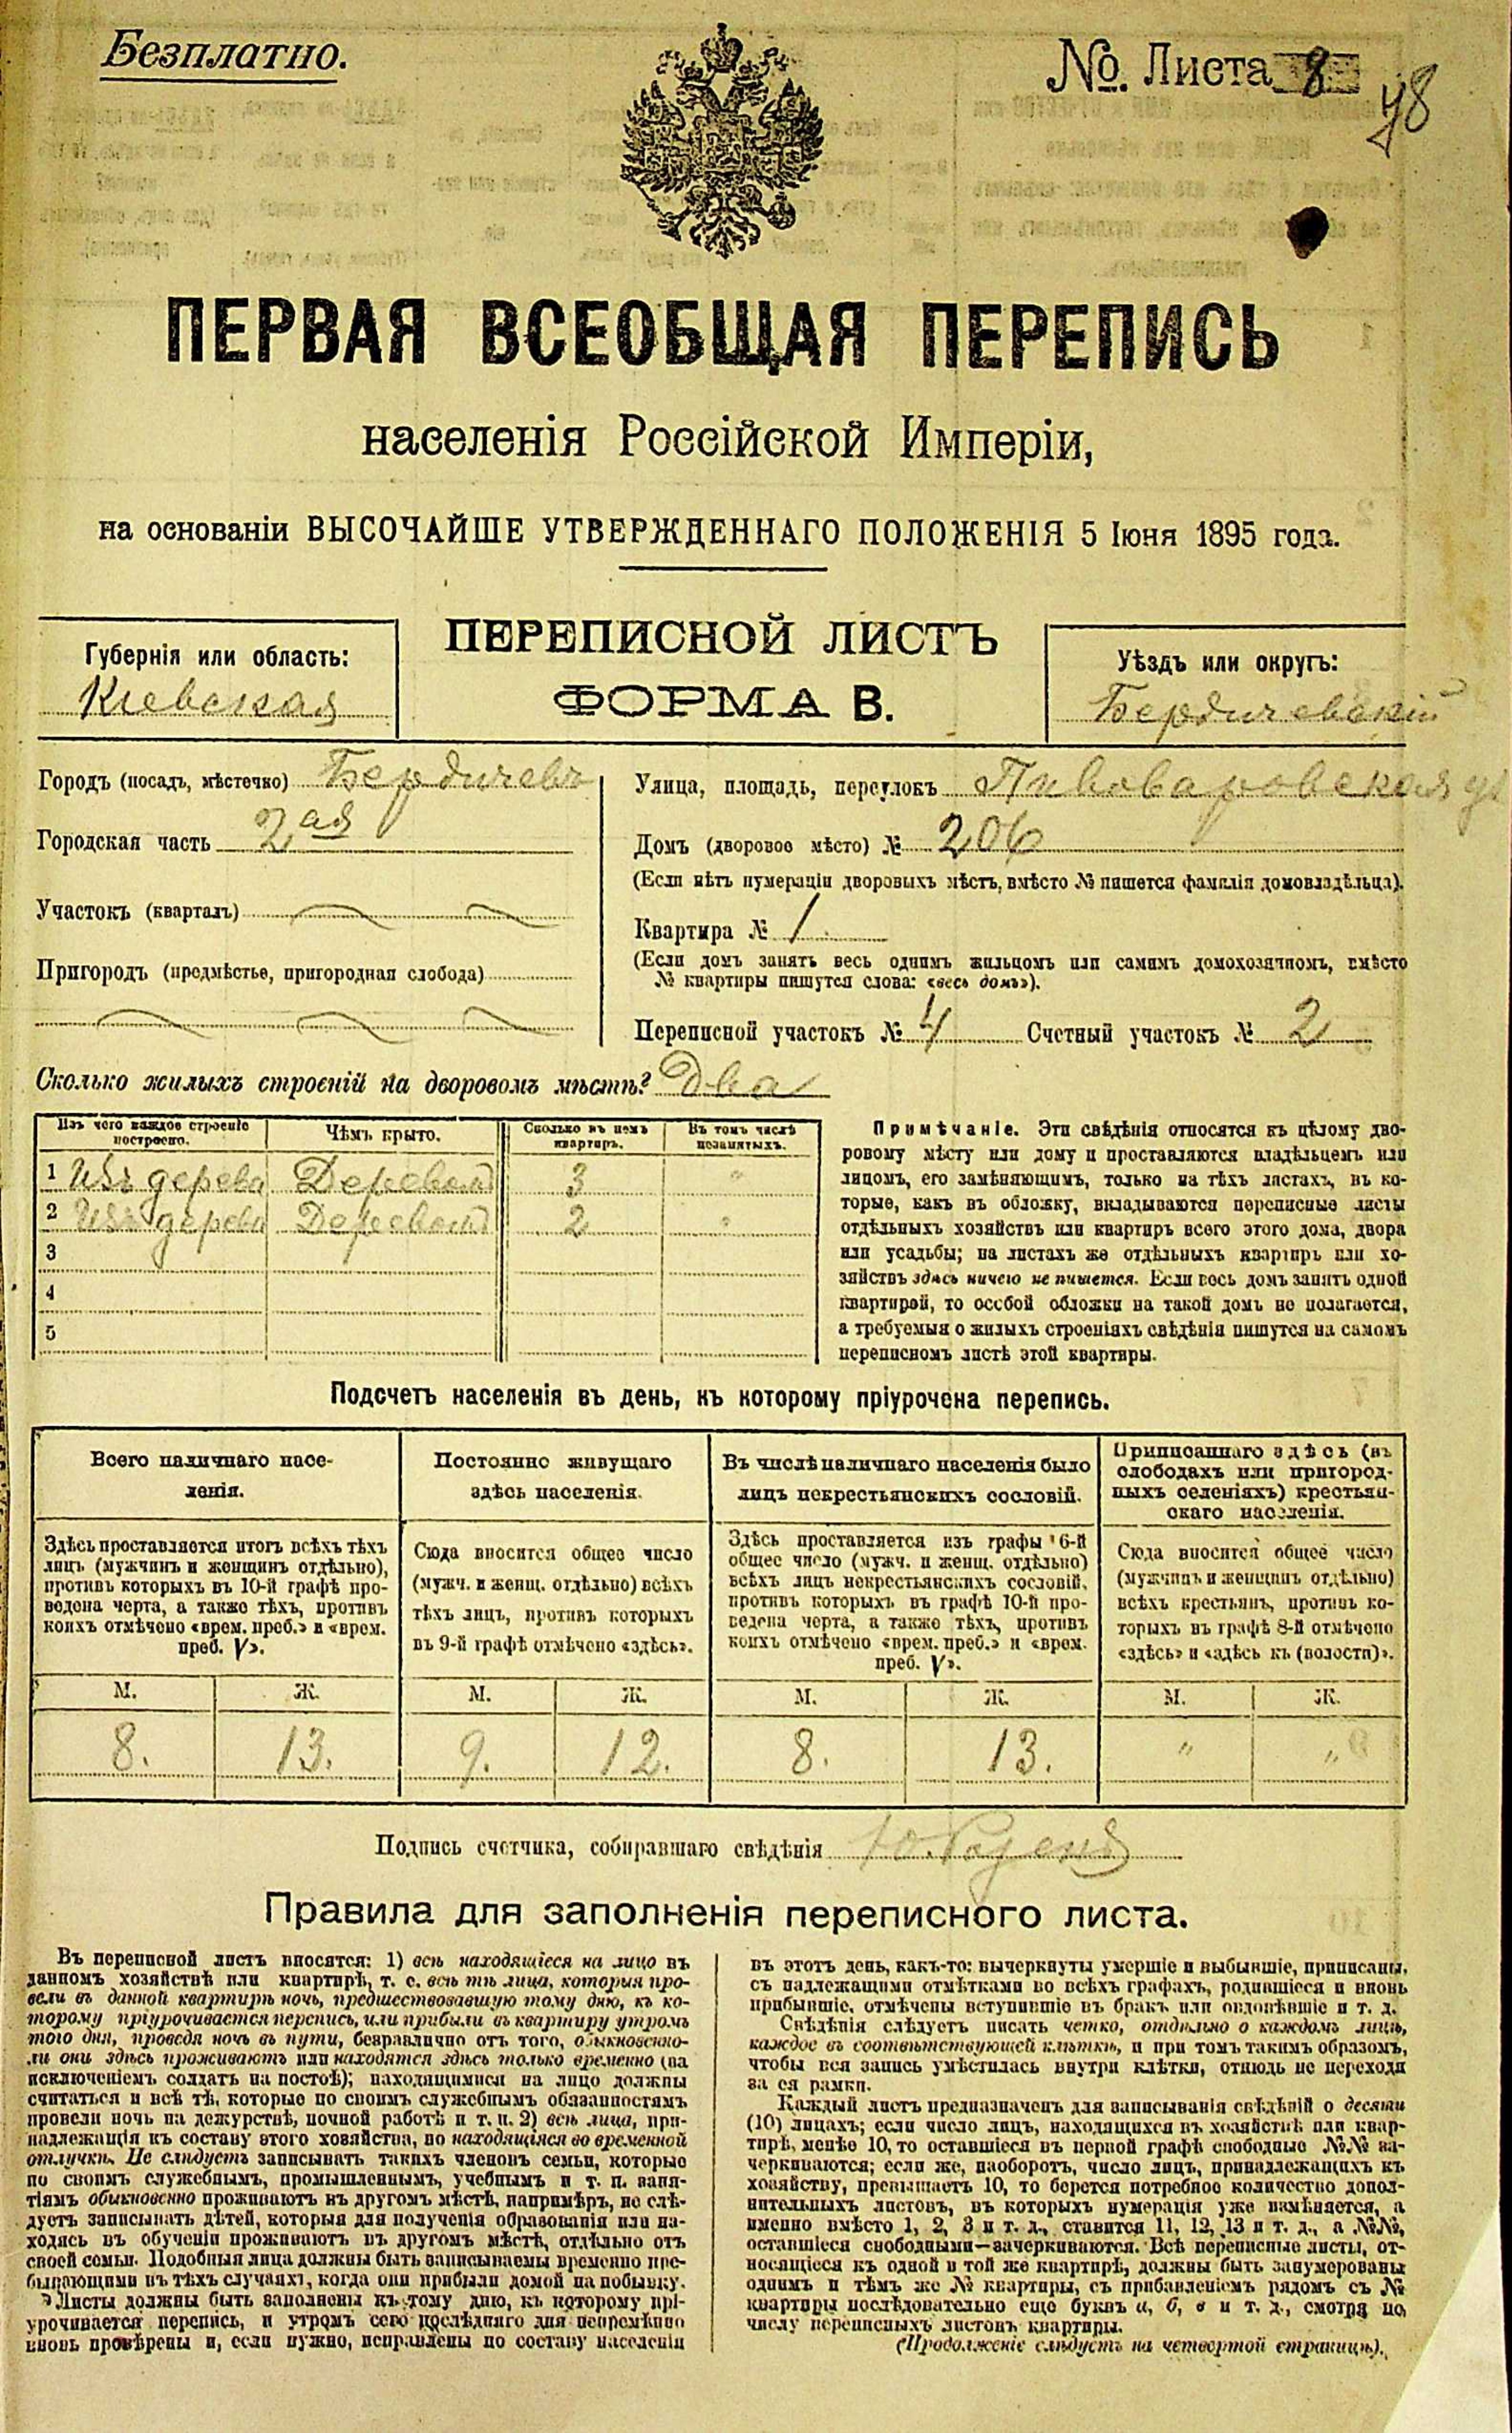 Безплатно.
№. Листа 8
48
ПЕРВАЯ ВСЕОБЩАЯ ПЕРЕПИСЬ
населенія Россійской Имперіи,
на основаніи ВЫСОЧАЙШЕ УТВЕРЖДЕННАГО ПОЛОЖЕНІЯ 5 Іюня 1895 года.
ПЕРЕПИСНОЙ ЛИСТЪ
ФОРМА В.
Губернія или область:
Кіевская
Уѣздъ или округъ:
Бердичевскій
Городъ (посадъ, мѣстечко) Бердичевъ
Городская часть 2ая
Участокъ (кварталъ)
Пригородъ (предмѣстье, пригородная слобода)
Улица, площадь, переулокъ Пивоваровская ул
Домъ (дворовое мѣсто) № 206
(Если нѣтъ нумераціи дворовыхъ мѣстъ, вмѣсто № пишется фамилія домовладѣльца).
Квартира № 1.
(Если домъ занятъ весь однимъ жильцомъ или самимъ домохозяиномъ, вмѣсто
№ квартиры пишутся слова: «весь домъ»).
Переписной участокъ № 4 Счетный участокъ № 2
Сколько жилыхъ строеній на дворовомъ мѣстѣ? Два
Изъ чего каждое строеніе построено.
Чѣмъ крыто.
Сколько въ немъ квартиръ.
Въ томъ числѣ незанятыхъ.
1 Изъ дерева Деревомъ 3 "
2 Изъ дерева Деревомъ 2 "
3
4
5
Примѣчаніе. Эти свѣдѣнія относятся къ цѣлому дво-
ровому мѣсту или дому и проставляются владѣльцемъ или
лицомъ, его замѣняющимъ, только на тѣхъ листахъ, въ ко-
торые, какъ въ обложку, вкладываются переписные листы
отдѣльныхъ хозяйствъ или квартиръ всего этого дома, двора
или усадьбы; на листахъ же отдѣльныхъ квартиръ или хо-
зяйствъ здѣсь ничего не пишется. Если весь домъ занятъ одной
квартирой, то особой обложки на такой домъ не полагается,
а требуемыя о жилыхъ строеніяхъ свѣдѣнія пишутся на самомъ
переписномъ листѣ этой квартиры.
Подсчетъ населенія въ день, къ которому пріурочена перепись.
Всего наличнаго насе-
ленія.
Здѣсь проставляется итогъ всѣхъ тѣхъ
лицъ (мужчинъ и женщинъ отдѣльно),
противъ которыхъ въ 10-й графѣ про-
ведена черта, а также тѣхъ, противъ
коихъ отмѣчено «врем. преб.» и «врем.
преб. V».
Постоянно живущаго
здѣсь населенія.
Сюда вносится общее число
(мужч. и женщ. отдѣльно) всѣхъ
тѣхъ лицъ, противъ которыхъ
въ 9-й графѣ отмѣчено «здѣсь».
Въ числѣ наличнаго населенія было
лицъ некрестьянскихъ сословій.
Здѣсь проставляется изъ графы 6-й
общее число (мужч. и женщ. отдѣльно)
всѣхъ лицъ некрестьянскихъ сословій,
противъ которыхъ въ графѣ 10-й про-
ведена черта, а также тѣхъ, противъ
коихъ отмѣчено «врем. преб.» и «врем.
преб. V».
Приписаннаго здѣсь (въ
слободахъ или пригород-
ныхъ селеніяхъ) крестьян-
скаго населенія.
Сюда вносится общее число
(мужчинъ и женщинъ отдѣльно)
всѣхъ крестьянъ, противъ ко-
торыхъ въ графѣ 8-й отмѣчено
«здѣсь» и «здѣсь къ (волости)».
М. Ж. М. Ж. М. Ж. М. Ж.
8. 13. 9. 12. 8. 13. " "
Подпись счетчика, собиравшаго свѣдѣнія
Правила для заполненія переписного листа.
Въ переписной листъ вносятся: 1) всѣ находящіеся на лицо въ
данномъ хозяйствѣ или квартирѣ, т. е. всѣ тѣ лица, которыя про-
вели въ данной квартирѣ ночь, предшествовавшую тому дню, къ ко-
торому пріурочивается перепись, или прибыли въ квартиру утромъ
того дня, проведя ночь въ пути, безразлично отъ того, обыкновенно-
ли они здѣсь проживаютъ или находятся здѣсь только временно (за
исключеніемъ солдатъ на постоѣ); находящимися на лицо должны
считаться и всѣ тѣ, которые по своимъ служебнымъ обязанностямъ
провели ночь на дежурствѣ, ночной работѣ и т. п. 2) всѣ лица, при-
надлежащія къ составу этого хозяйства, но находящіяся во временной
отлучкѣ. Не слѣдуетъ записывать такихъ членовъ семьи, которые
по своимъ служебнымъ, промышленнымъ, учебнымъ и т. п. заня-
тіямъ обыкновенно проживаютъ въ другомъ мѣстѣ, напримѣръ, не слѣ-
дуетъ записывать дѣтей, которыя для полученія образованія или на-
ходясь въ обученіи проживаютъ въ другомъ мѣстѣ, отдѣльно отъ
своей семьи. Подобныя лица должны быть записываемы временно пре-
бывающими въ тѣхъ случаяхъ, когда они прибыли домой на побывку.
Листы должны быть заполнены къ тому дню, къ которому прі-
урочивается перепись, и утромъ сего послѣдняго дня непремѣнно
вновь провѣрены и, если нужно, исправлены по составу населенія
въ этотъ день, какъ-то: вычеркнуты умершіе и выбывшіе, приписаны,
съ надлежащими отмѣтками во всѣхъ графахъ, родившіеся и вновь
прибывшіе, отмѣчены вступившіе въ бракъ или овдовѣвшіе и т. д.
Свѣдѣнія слѣдуетъ писать четко, отдѣльно о каждомъ лицѣ,
каждое въ соотвѣтствующей клѣткѣ, и при томъ такимъ образомъ,
чтобы вся запись умѣстилась внутри клѣтки, отнюдь не переходя
за ея рамки.
Каждый листъ предназначенъ для записыванія свѣдѣній о десяти
(10) лицахъ; если число лицъ, находящихся въ хозяйствѣ или квар-
тирѣ, менѣе 10, то оставшіеся въ первой графѣ свободные №№ за-
черкиваются; если же, наоборотъ, число лицъ, принадлежащихъ къ
хозяйству, превышаетъ 10, то берется потребное количество допол-
нительныхъ листовъ, въ которыхъ нумерація уже измѣняется, а
именно вмѣсто 1, 2, 3 и т. д., ставится 11, 12, 13 и т. д., а №№,
оставшіеся свободными—зачеркиваются. Всѣ переписные листы, от-
носящіеся къ одной и той же квартирѣ, должны быть занумерованы
однимъ и тѣмъ же № квартиры, съ прибавленіемъ рядомъ съ №
квартиры послѣдовательно еще буквъ а, б, в и т. д., смотря по
числу переписныхъ листовъ квартиры.
(Продолженіе слѣдуетъ на четвертой страницѣ).